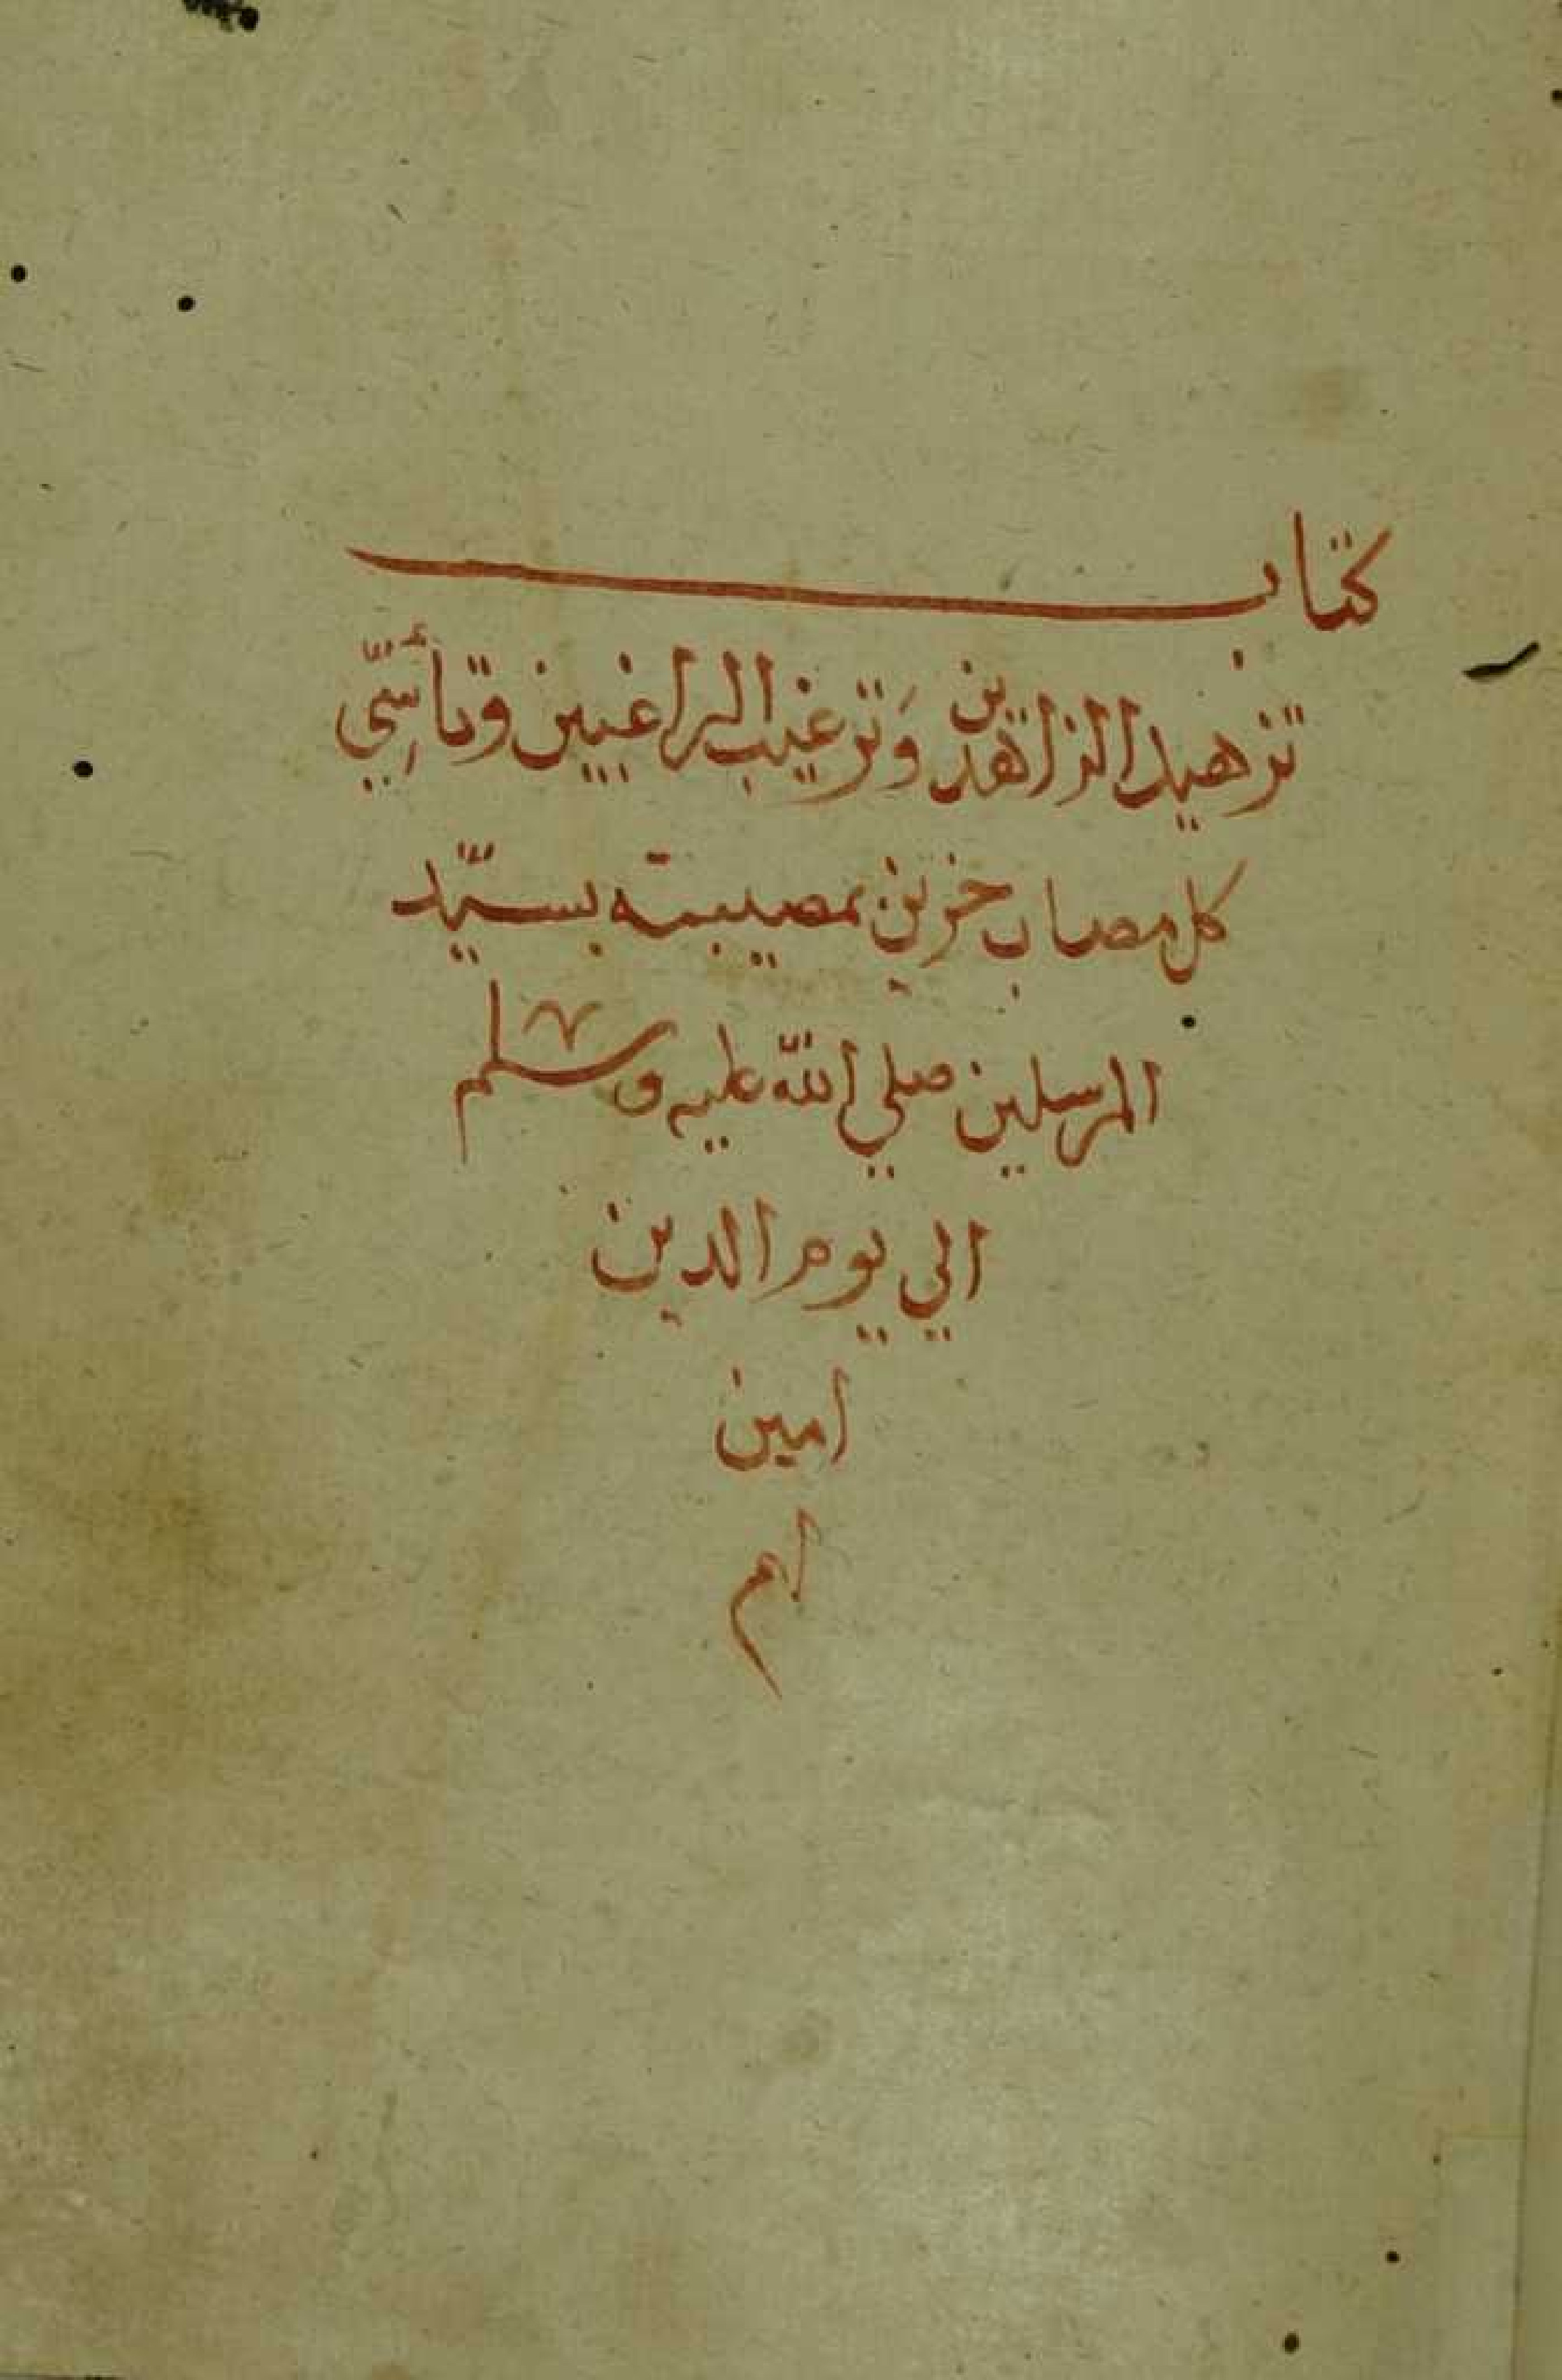 كتاب
تزهيد الزاهدين وَترغيب الراغبين وتأسِّي
كل مصاب حزين بمصيبته بسيّد
المرسلين صلي الله عليه وسلم
الي يوم الدين
امين
ام